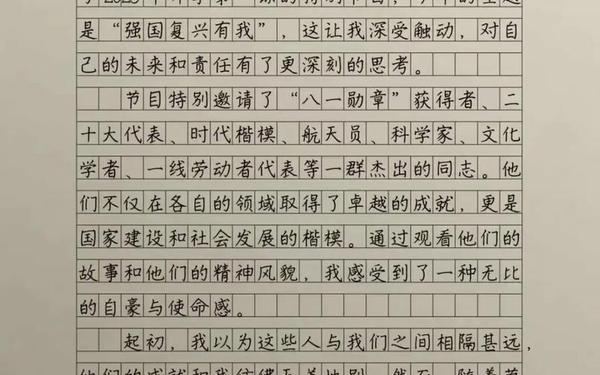 是“强国复兴有我”，这让我深受触动，对自
己的未来和责任有了更深刻的思考。
节目特别邀请了“八一勋章”获得者、二
十大代表、时代楷模、航天员、科学家、文化
学者、一线劳动者代表等一群杰出的同志。他
们不仅在各自的领域取得了卓越的成就，更是
国家建设和社会发展的楷模。通过观看他们的
故事和他们的精神风貌，我感受到了一种无比
的自豪与使命感。
起初，我以为这些人与我们之间相隔甚远，